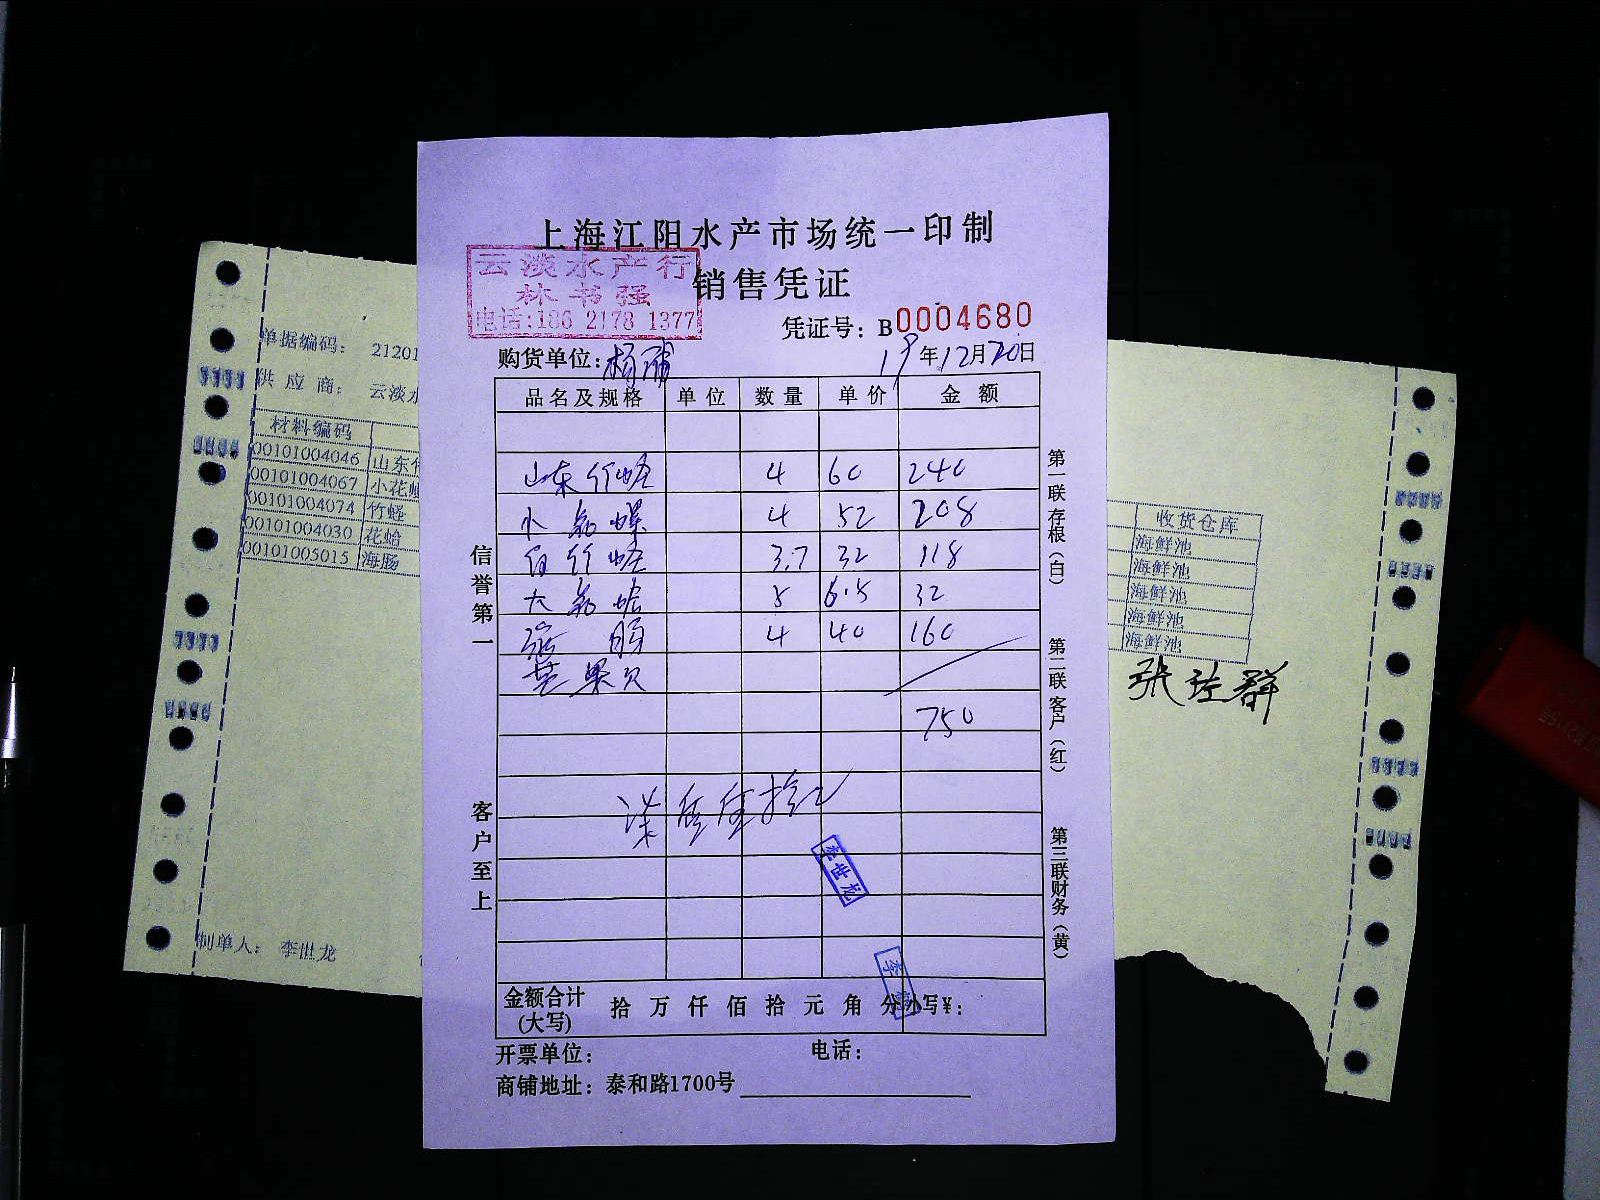 上海江阳水产市场统一印制
云淡水产行
林书强
电话:186 2178 1377
销售凭证
凭证号: B0004680
购货单位: 杨浦 19年12月20日
品名及规格 单位 数量 单价 金额
山东竹蛏 4 60 240
小花螺 4 52 208
白竹蛏 3.7 32 118
大花蛤 5 6.5 32
海肠 4 40 160
苹果贝
750
李世龙
金额合计(大写) 拾 万 仟 佰 拾 元 角 分 小写¥:
开票单位: 电话:
商铺地址: 泰和路1700号
信誉第一
客户至上
第一联存根(白)
第二联客户(红)
第三联财务(黄)
单据编码: 21201
供应商: 云淡水
材料编码
00101004046 山东竹
00101004067 小花螺
00101004074 竹蛏
00101004030 花蛤
00101005015 海肠
制单人: 李世龙
收货仓库
海鲜池
海鲜池
海鲜池
海鲜池
海鲜池